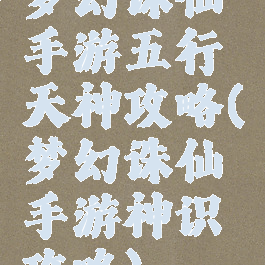 梦幻诛仙
手游五行
天神攻略(
梦幻诛仙
手游神识
攻略)